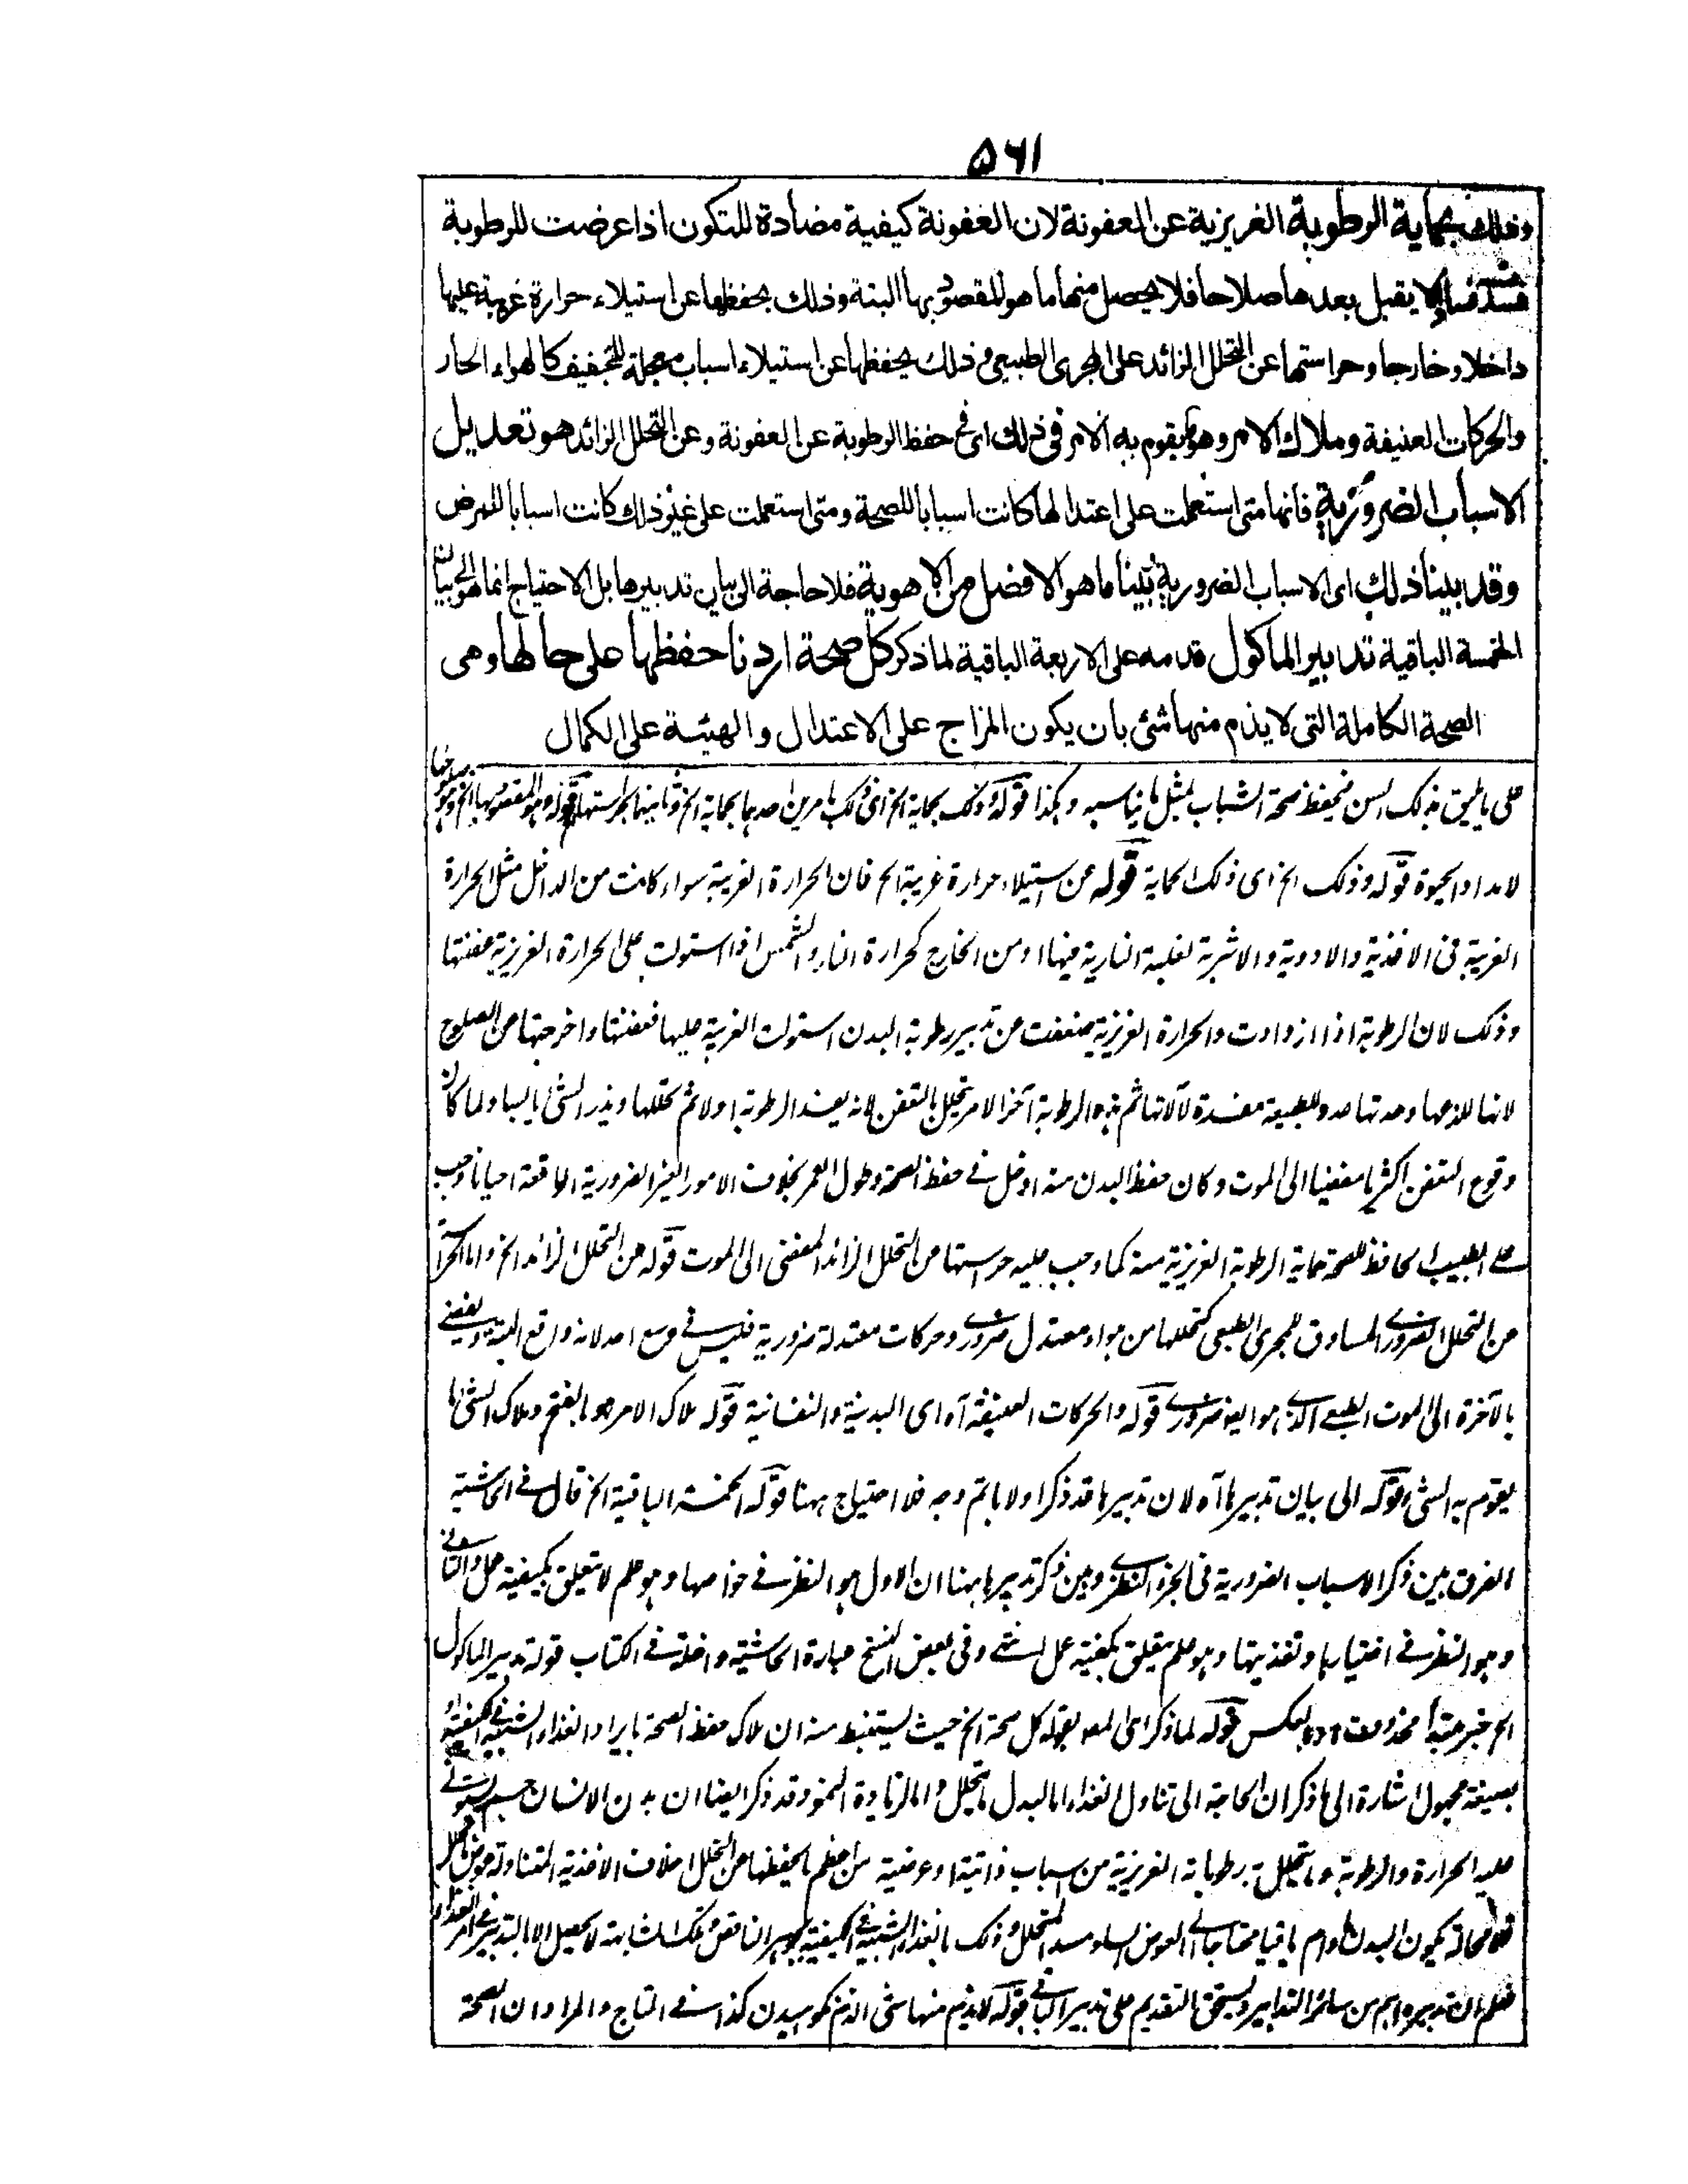 ۵۶۱
وذلك بحماية الرطوبة الغريزية عن العفونة لان العفونة كيفية مضادة للتكون اذا عرضت للرطوبة
لا يقبل بعدها صلاحا فلا يحصل منها ما هو المقصود بها البتة وذلك بحفظها عن استيلاء حرارة غريبة عليها
داخلا وخارجا وحراستها عن التحلل الزائد على المجرى الطبيعى وذلك بحفظها عن استيلاء اسباب معجلة للتجفيف كالهواء الحار
والحركات العنيفة وملاك الامر وهو ما يقوم به الامر فى ذلك اى فى حفظ الرطوبة عن العفونة وعن التحلل الزائد هو تعديل
الاسباب الضرورية فانها متى استعملت على اعتدالها كانت اسبابا للصحة ومتى استعملت على غير ذلك كانت اسبابا للمرض
وقد بينا ذلك اى الاسباب الضرورية بينا ما هو الافضل من الاهوية فلا حاجة الى بيان تدبيرها بل الاحتياج انما هو الى بيان
الخمسة الباقية تدابير الماكول قدمه على الاربعة الباقية لما ذكر كل صحة اردنا حفظها على حالها وهى
الصحة الكاملة التى لا يذم منها شئ بان يكون المزاج على الاعتدال والهيئة على الكمال
على ما يليق بذلك السن فيحفظ صحة الشباب بمثل ما يناسبه وهكذا قوله وذلك بحماية الخ اى ذلك بامرين احدهما بحماية الخ وثانيهما بحراستها قوله هو المقصود بها الخ
لامداد الحيوة قوله وذلك الخ اى ذلك الحماية قوله عن استيلاء حرارة غريبة الخ فان الحرارة الغريبة سواء كانت من الداخل مثل الحرارة
الغريبة فى الاغذية والادوية والاشربة لغلبة النارية فيها او من الخارج كحرارة النار والشمس اذا استولت على الحرارة الغريزية عفنتها
وذلك لان الرطوبة اذا ازدادت والحرارة الغريزية ضعفت عن تدبير رطوبة البدن استولت الغريبة عليها فعفنتها واخرجتها من الصلوح
لانها للذعها وحدتها عدو للطبيعة مفسدة لآلاتها ثم هذه الرطوبة آخر الامر تحلل بالتعفن لانه يفسد الرطوبة اولا ثم يحللها ويذر الشئ يابسا ولما كان
وقوع التعفن اكثريا مفضيا الى الموت وكان حفظ البدن منه ادخل فى حفظ الصحة وطول العمر بخلاف الامور الغير الضرورية الواقعة احيانا وجب
على الطبيب الحافظ للصحة حماية الرطوبة الغريزية منه كما وجب عليه حراستها من التحلل الزائد المفضى الى الموت قوله عن التحلل الزائد الخ واما الحراسة
من التحلل الضرورى المساوق للمجرى الطبعى كتحللها من هواء معتدل ضرورى وحركات معتدلة ضرورية فليس فى وسع احد لانه واقع البتة ويفضى
بالآخرة الى الموت الطبيعى الذى هو ايضا ضرورى قوله والحركات العنيفة آه اى البدنية والنفسانية قوله ملاك الامر هو بالفتح وملاك الشئ ما
يقوم به الشئ قوله الى بيان تدبيرها آه لان تدبيرها قد ذكر اولا باتم وجه فلا احتياج ههنا قوله الخمسة الباقية الخ قال فى الحاشية
الفرق بين ذكر الاسباب الضرورية فى الجزء النظرى وبين ذكر تدبيرها ههنا ان الاول هو النظر فى خواصها وهو علم لا يتعلق بكيفية عمل والثانى
وهو النظر فى اختيارها وتغذيتها وهو علم يتعلق بكيفية عمل شئ وفى بعض النسخ عبارة الحاشية داخلة فى الكتاب قوله تدبير الماكول
الخ خبر مبتدأ محذوف او بالعكس قوله لما ذكر اى المص بقوله كل صحة الخ حيث يستنبط منه ان ملاك حفظ الصحة بايراد الغذاء الشبيه فى الكيفية
بصيغة مجهول اشارة الى ما ذكر ان الحاجة الى تناول الغذاء اما لبدل ما يتحلل واما لزيادة النمو وقد ذكر ايضا ان بدن الانسان جسم يستولى
عليه الحرارة والرطوبة وما يتحلل به رطوباته الغريزية من اسباب ذاتية او عرضية من اعظم ما يحفظها عن التحلل اخلاف الاغذية المتناولة عوض المتحلل
فلا محالة يكون البدن ما دام باقيا محتاجا الى العوض الساد مسد المتحلل وذلك بالغذاء الشبيه فى الكيفية لان نقص تلك المشابهة لا يحصل الا بالتدبير
فعلم ان تدبيره اهم من سائر التدابير ويستحق التقديم على تدبير الباقى قوله لا يذم منها شئ الذم نكوهيدن كذا فى التاج والمراد ان الصحة